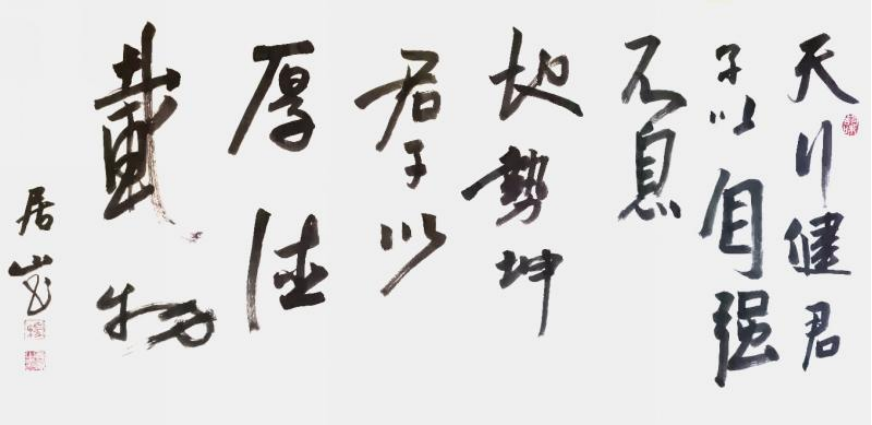 天行健君
子以自强
不息
地勢坤
君子以
厚德
載物
居山